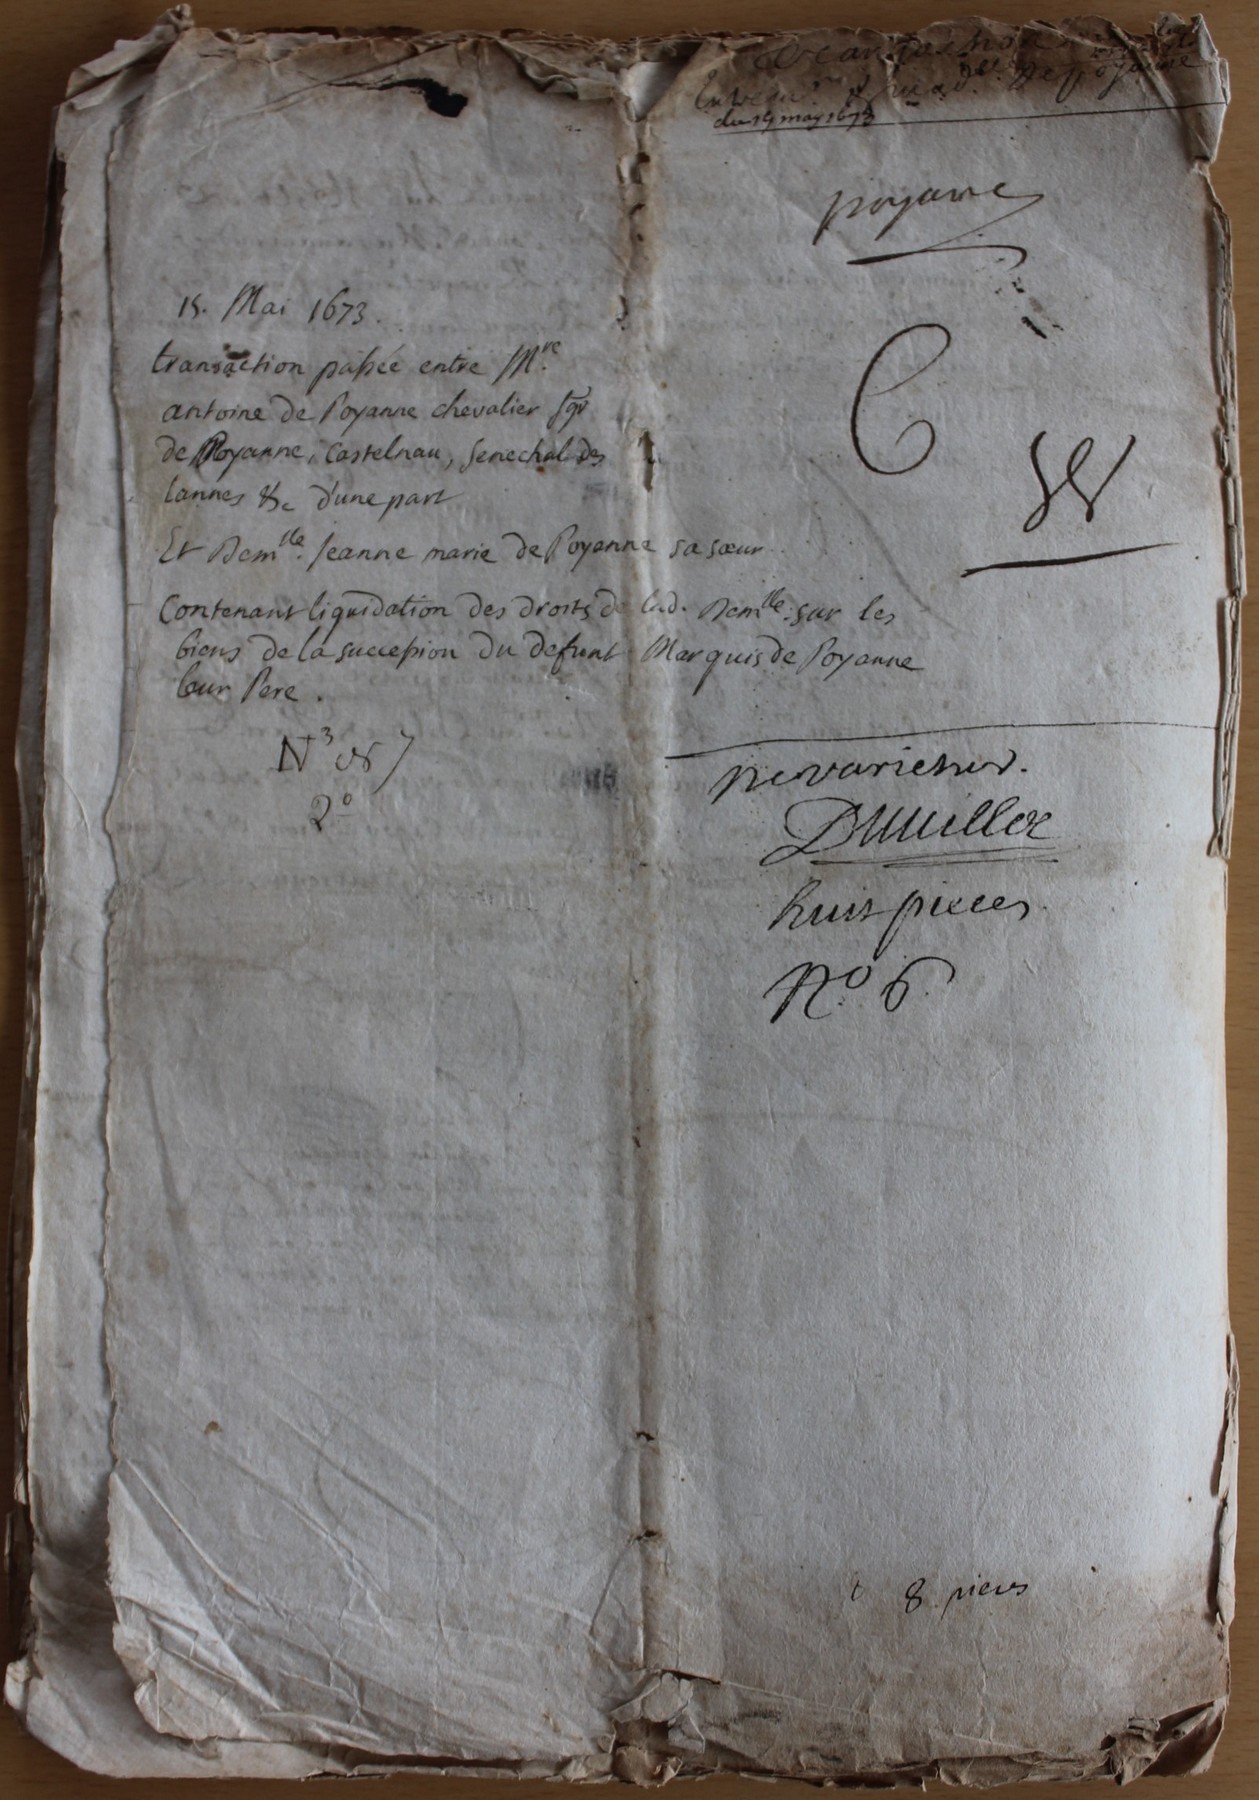 de poyanne
du 15 may 1673
poyanne
C
15. Mai 1673.
transaction passée entre Mre
antoine de Poyanne chevalier sgr
de Poyanne, Castelnau, senechal des
lannes &c d'une part
Et Demlle. Jeanne marie de Poyanne sa sœur
Contenant liquidation des droits de lad. Demlle. sur les
biens de la succession du defunt Marquis de Poyanne
leur Pere.
N 3
2o
ne varietur.
huit pieces
No 6
8 pieces